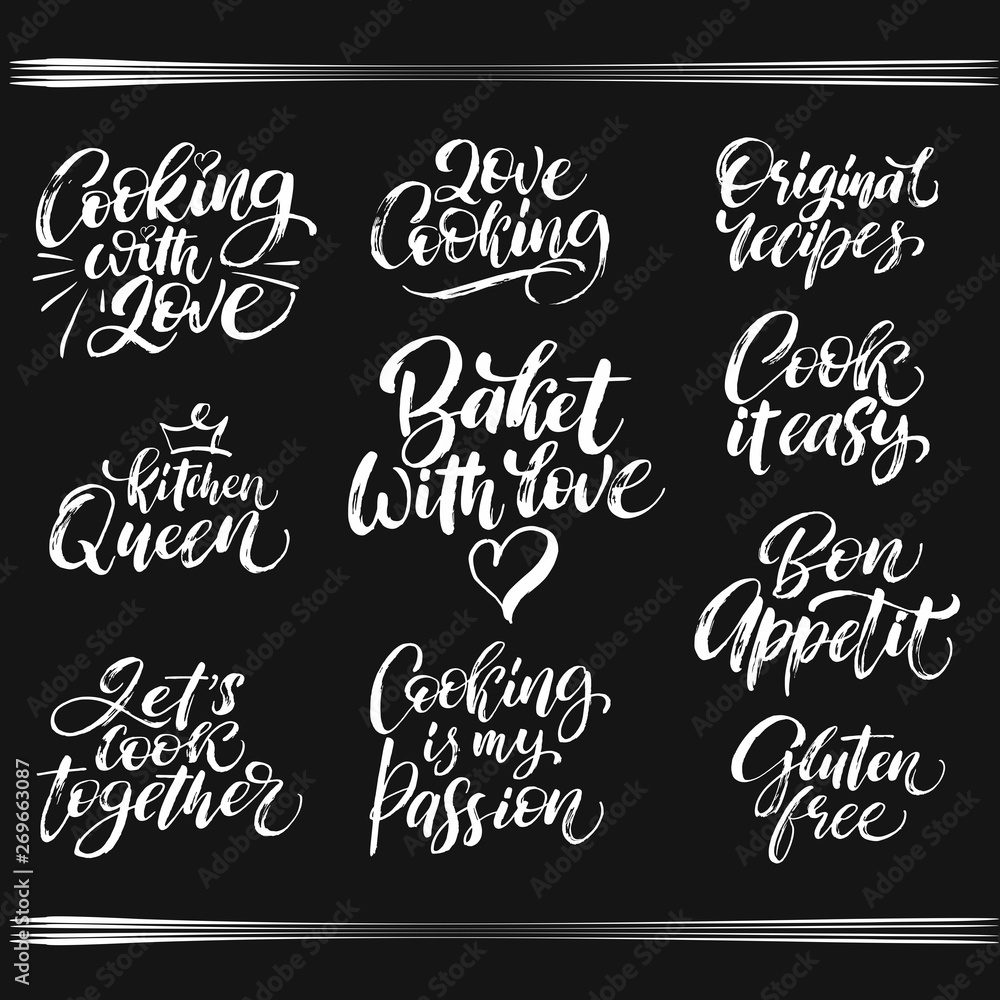 Cooking
with
Love
Love
Cooking
Original
recipes
kitchen
Queen
Baket
with love
Cook
it easy
Bon
Appetit
Let's
cook
together
Cooking
is my
Passion
Gluten
free
Adobe Stock | #269663087